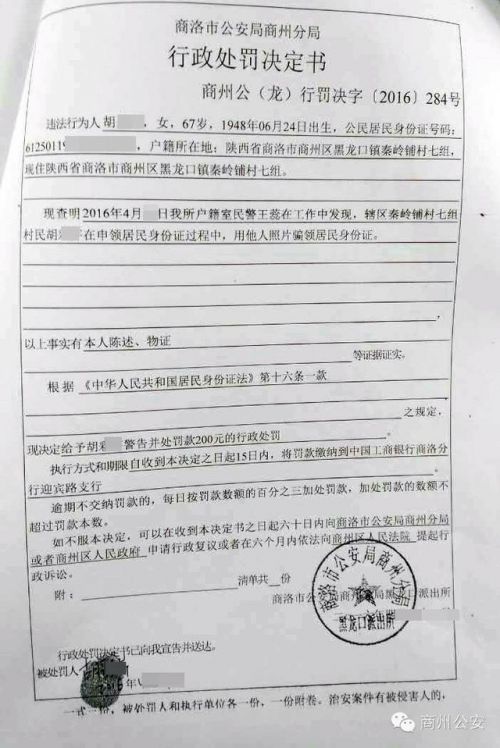 商洛市公安局商州分局
行政处罚决定书
商州公（龙）行罚决字〔2016〕284号
违法行为人胡 ，女，67岁，1948年06月24日出生，公民居民身份证号码：
61250119 ，户籍所在地：陕西省商洛市商州区黑龙口镇秦岭铺村七组，
现住陕西省商洛市商州区黑龙口镇秦岭铺村七组。
现查明2016年4月 日我所户籍室民警王蕊在工作中发现，辖区秦岭铺村七组
村民胡 在申领居民身份证过程中，用他人照片骗领居民身份证。
以上事实有本人陈述、物证
等证据证实。
根据《中华人民共和国居民身份证法》第十六条一款
之规定，
现决定给予胡彩 警告并处罚款200元的行政处罚
执行方式和期限自收到本决定之日起15日内，将罚款缴纳到中国工商银行商洛分
行迎宾路支行
逾期不交纳罚款的，每日按罚款数额的百分之三加处罚款，加处罚款的数额不
超过罚款本数。
如不服本决定，可以在收到本决定书之日起六十日内向商洛市公安局商州分局
或者商州区人民政府 申请行政复议或者在六个月内依法向商州区人民法院 提起行
政诉讼。
附： 清单共 份
商洛市公安局商州分局黑龙口派出所
商洛市公安局商州分局
黑龙口派出所
行政处罚决定书已向我宣告并送达。
被处罚人
一式三份，被处罚人和执行单位各一份，一份附卷。治安案件有被侵害人的，
商州公安